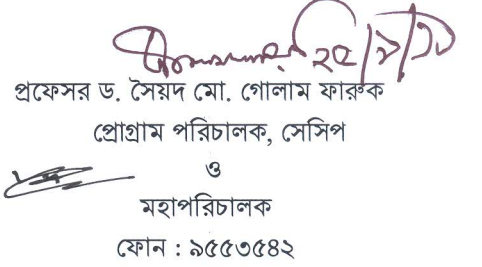 প্রফেসর ড. সৈয়দ মো. গোলাম ফারুক
প্রোগ্রাম পরিচালক, সেসিপ
ও
মহাপরিচালক
ফোন : ৯৫৫৩৫৪২